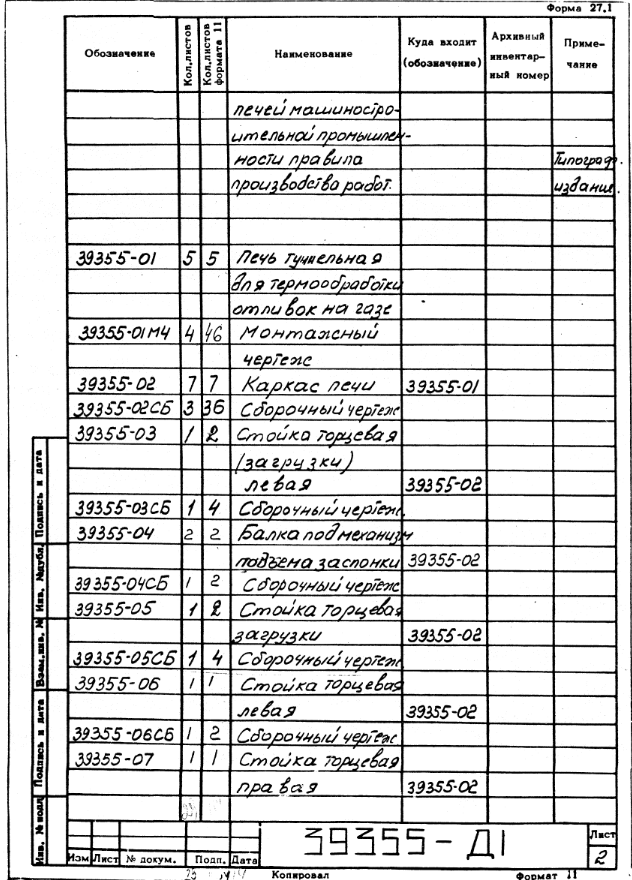 Форма 27.1
Обозначение Кол.листов Кол.листов формата 11 Наименование Куда входит (обозначение) Архивный инвентарный номер Примечание
печей машиностро-
ительной промышлен-
ности правила Типограф.
производства работ. издание.
39355-01 5 5 Печь туннельная
для термообработки
отливок на газе
39355-01М4 4 46 Монтажный
чертеж
39355-02 7 7 Каркас печи 39355-01
39355-02СБ 3 36 Сборочный чертеж
39355-03 1 2 Стойка торцевая
(загрузки)
левая 39355-02
39355-03СБ 1 4 Сборочный чертеж.
39355-04 2 2 Балка под механизм
подъема заслонки 39355-02
39355-04СБ 1 2 Сборочный чертеж
39355-05 1 2 Стойка торцевая
загрузки 39355-02
39355-05СБ 1 4 Сборочный чертеж
39355-06 1 1 Стойка торцевая
левая 39355-02
39355-06СБ 1 2 Сборочный чертеж
39355-07 1 1 Стойка торцевая
правая 39355-02
Инв. № подл Подпись и дата Взам.инв. № Инв. №дубл. Подпись и дата
39355-Д1
Лист
2
Изм Лист № докум. Подп. Дата
Копировал Формат 11